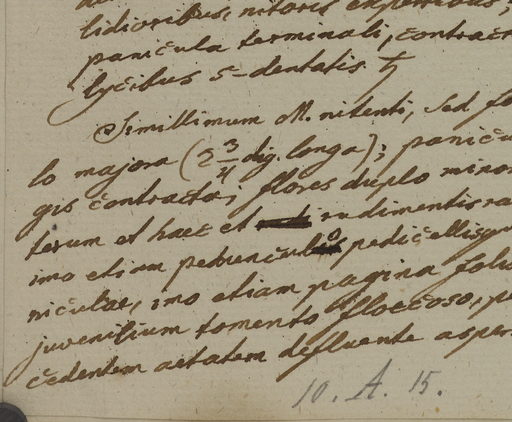 lidioribus, nitoris expertibus,
panicula terminali, contract
lycibus 5-dentatis ♄
Simillimum M. nitenti, sed fo
lo majora (2 3/4 dig. longa); panicu
gis contracta; flores duplo minor
terum et haec et rudimentis ra
imo etiam pedunculo pedicellisqu
niculae, imo etiam pagina foli
juvenilium tomento floccoso, p
cedentem aetatem defluente asper
10. A. 15.